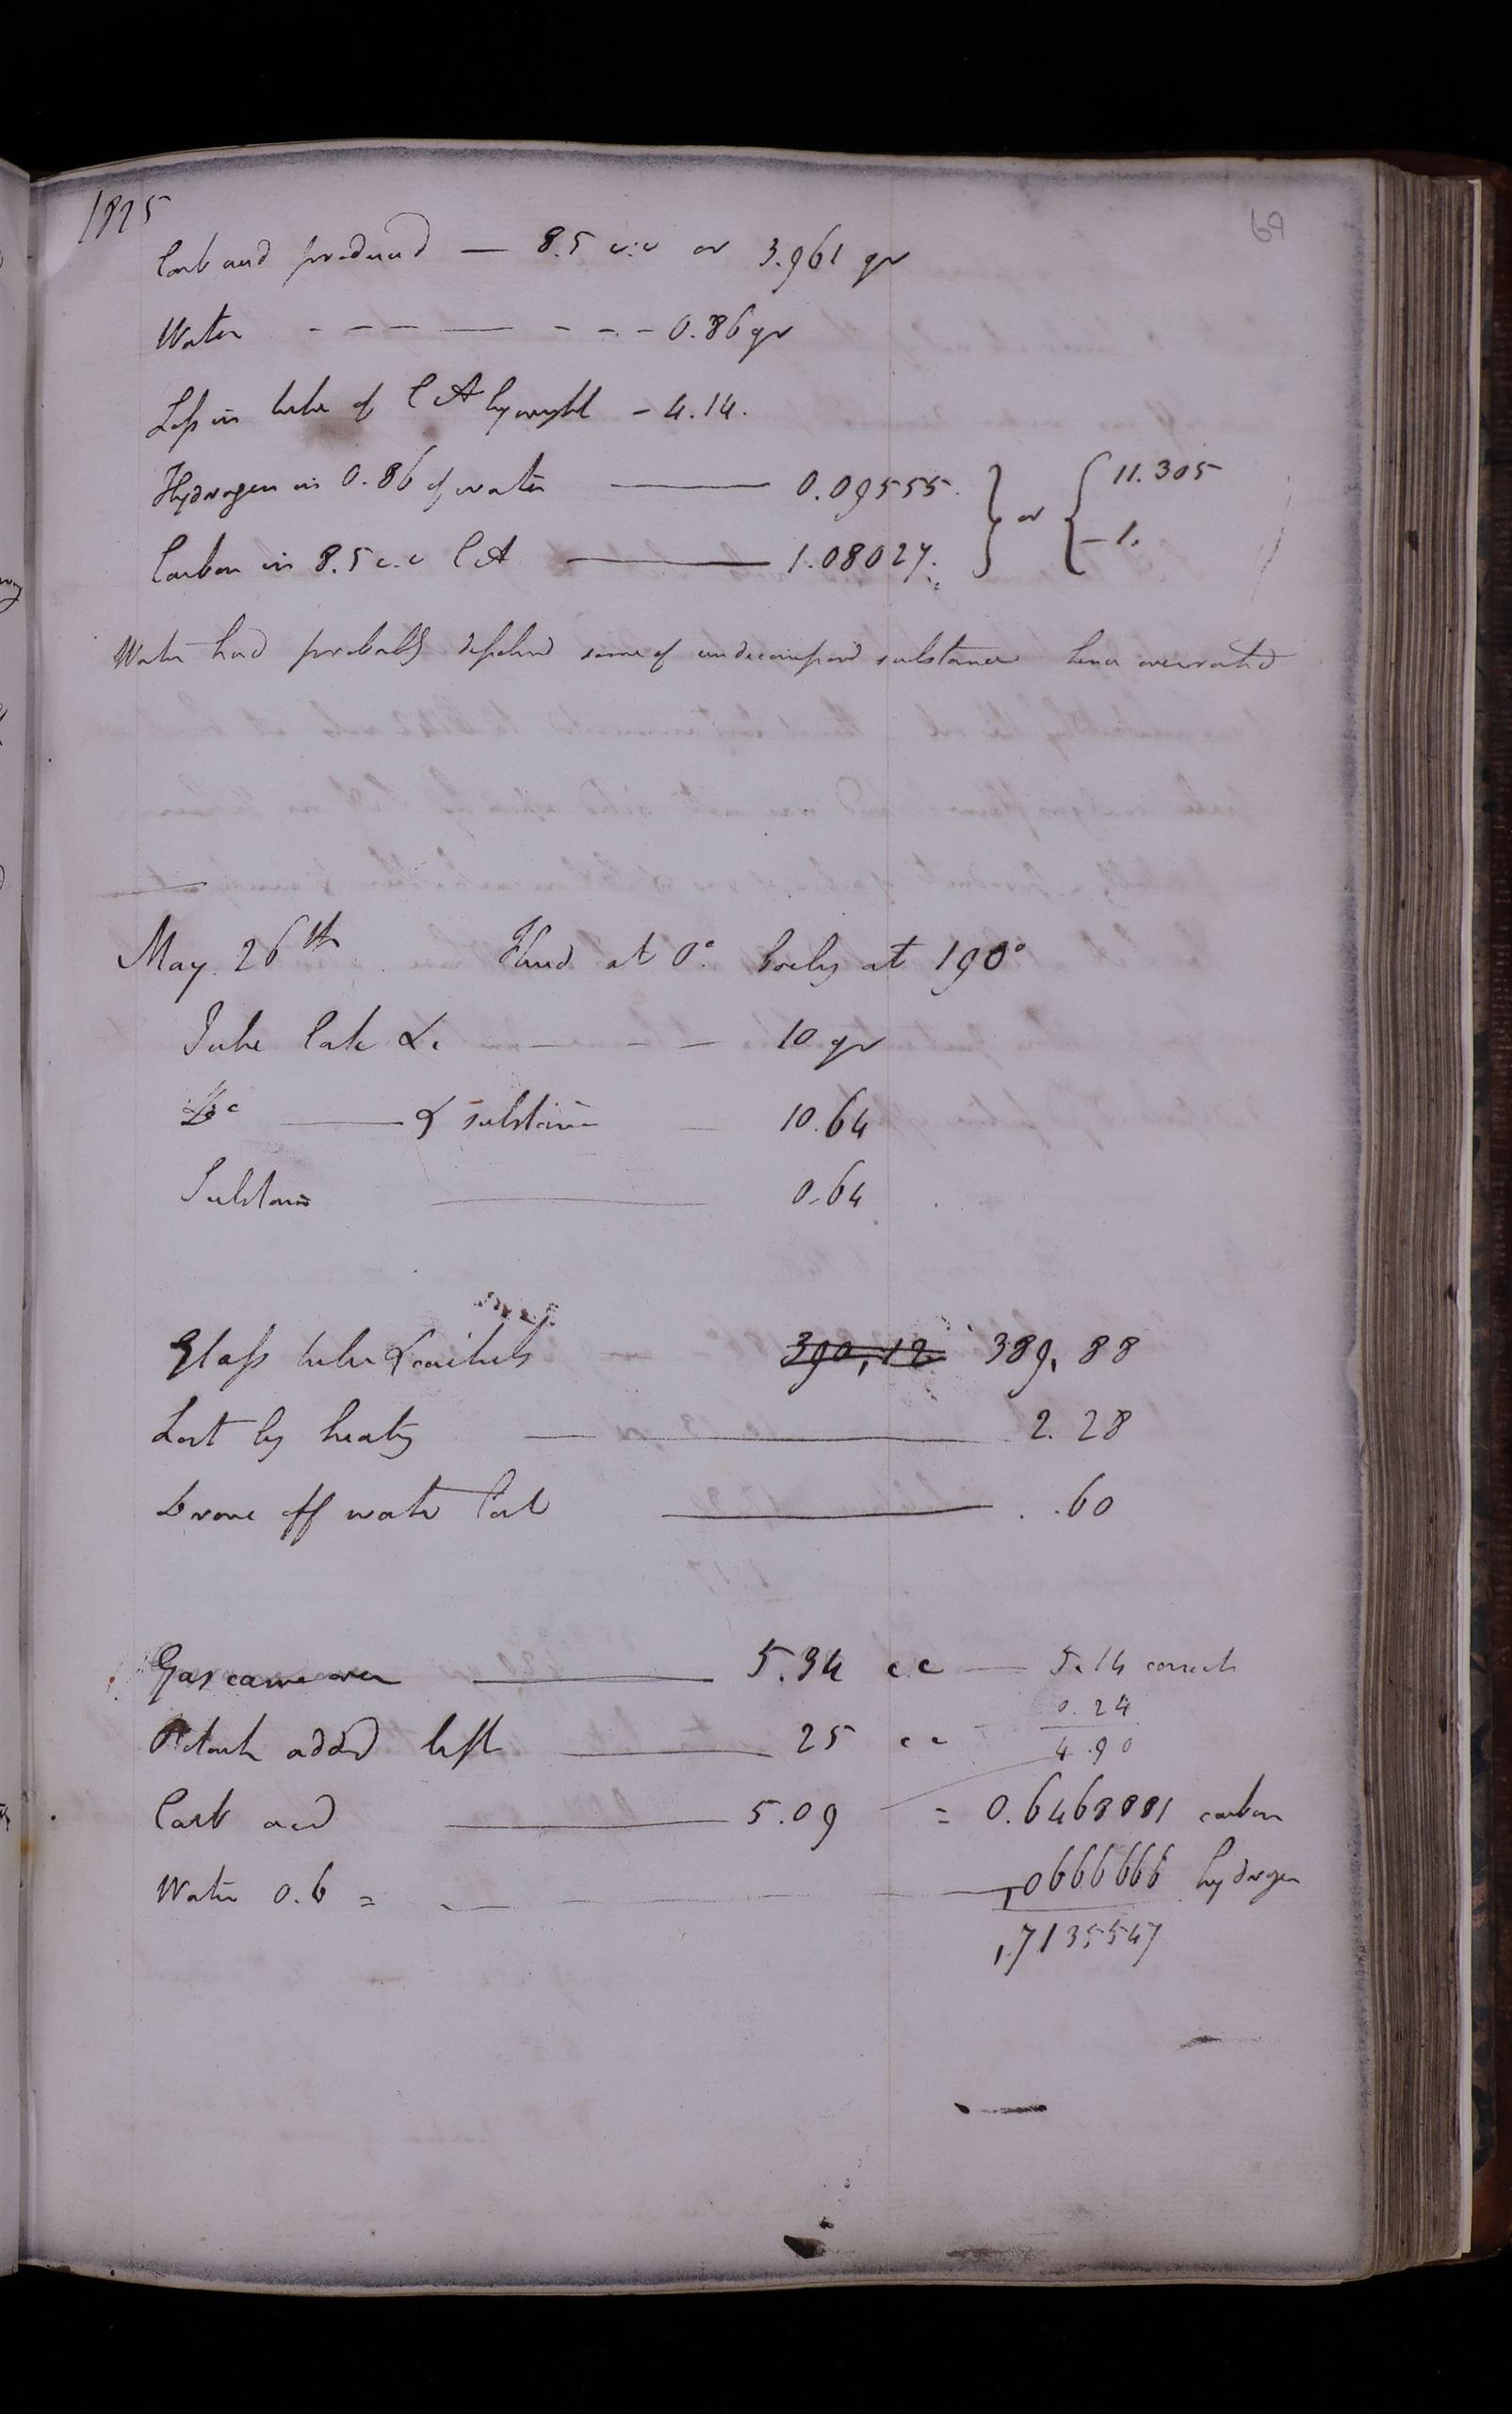 1825
69
Carb acid produced — 8.5 c:c or 3.961 gr
Water - - - — - - - 0.86 gr
Loss in tube of C A by weight - 4.14.
Hydrogen in 0.86 of water — 0.09555. } or { 11.305
Carbon in 8.5 c.c C A — 1.08027. } { — 1.
Water had probably dissolved some of undecomposed substance hence overrated
May 26th Fluid at 0° boils at 190°
Tube &c - - - 10 gr
Do — & substance - 10.64
Substance — 0.64
Glass tube & 390,12 389.88
Lost by heating — 2.28
Drove off water lost — .60
Gas came over — 5.34 c c — 5.14 correct
0.24
Potash added left — 25 c c - 4.90
Carb acid — 5.09 = 0.6468881 carbon
Water 0.6 = - — ,0666666 hydrogen
,7135547